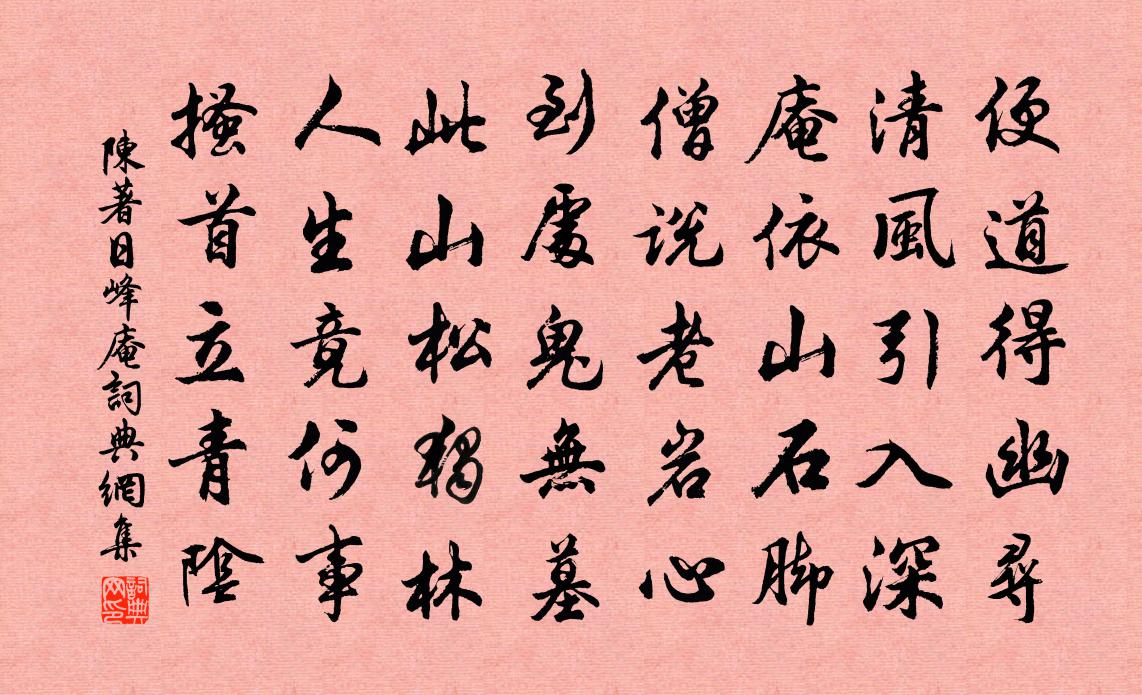 便道得幽尋
清風引入深
庵依山石脚
僧説老岩心
到處鬼無墓
此山松獨林
人生竟何事
搔首立青陰
陳著日峰庵詞典網集
詞典網印